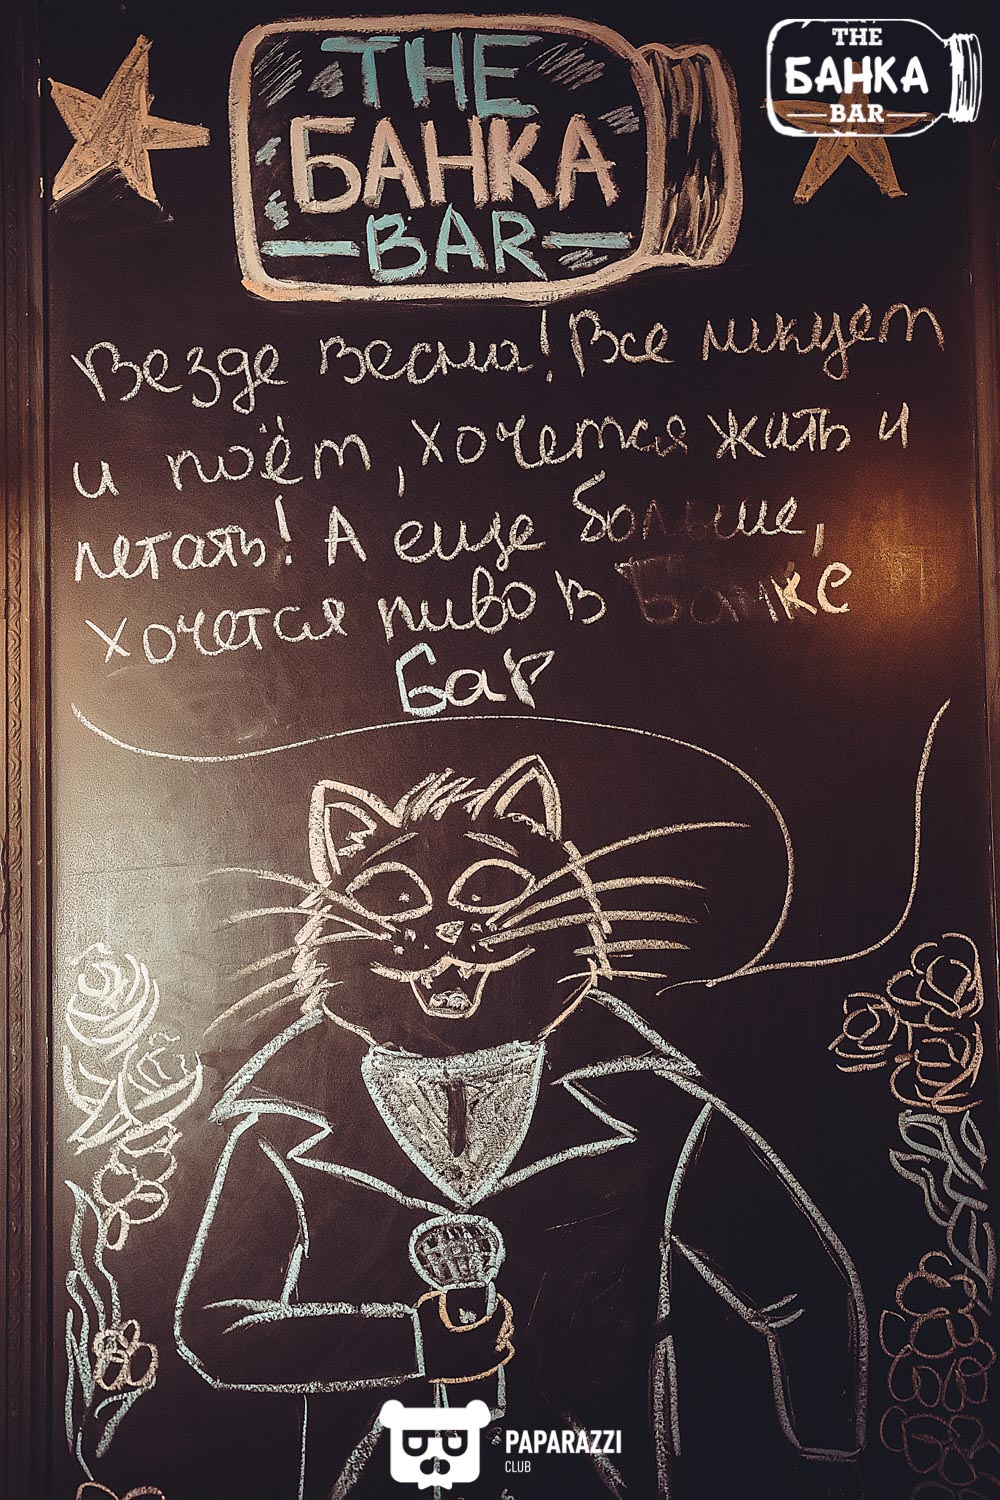 THE
БАНКА
BAR
THE
БАНКА
BAR
Везде весна! Все ликует
и поёт, хочется жить и
летать! А еще больше,
хочется пиво в Банке
Бар
PAPARAZZI
CLUB